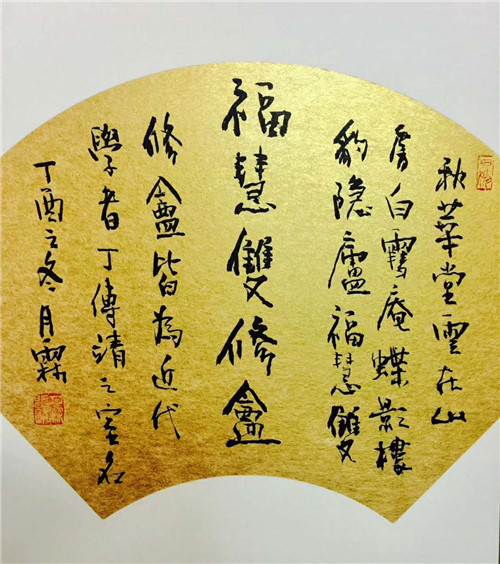 秋華堂雲在山
房白庵蝶影樓
豹隐廬福慧雙
福慧雙修盦
修盦皆為近代
學者丁傳清之室名
丁酉之冬月霖